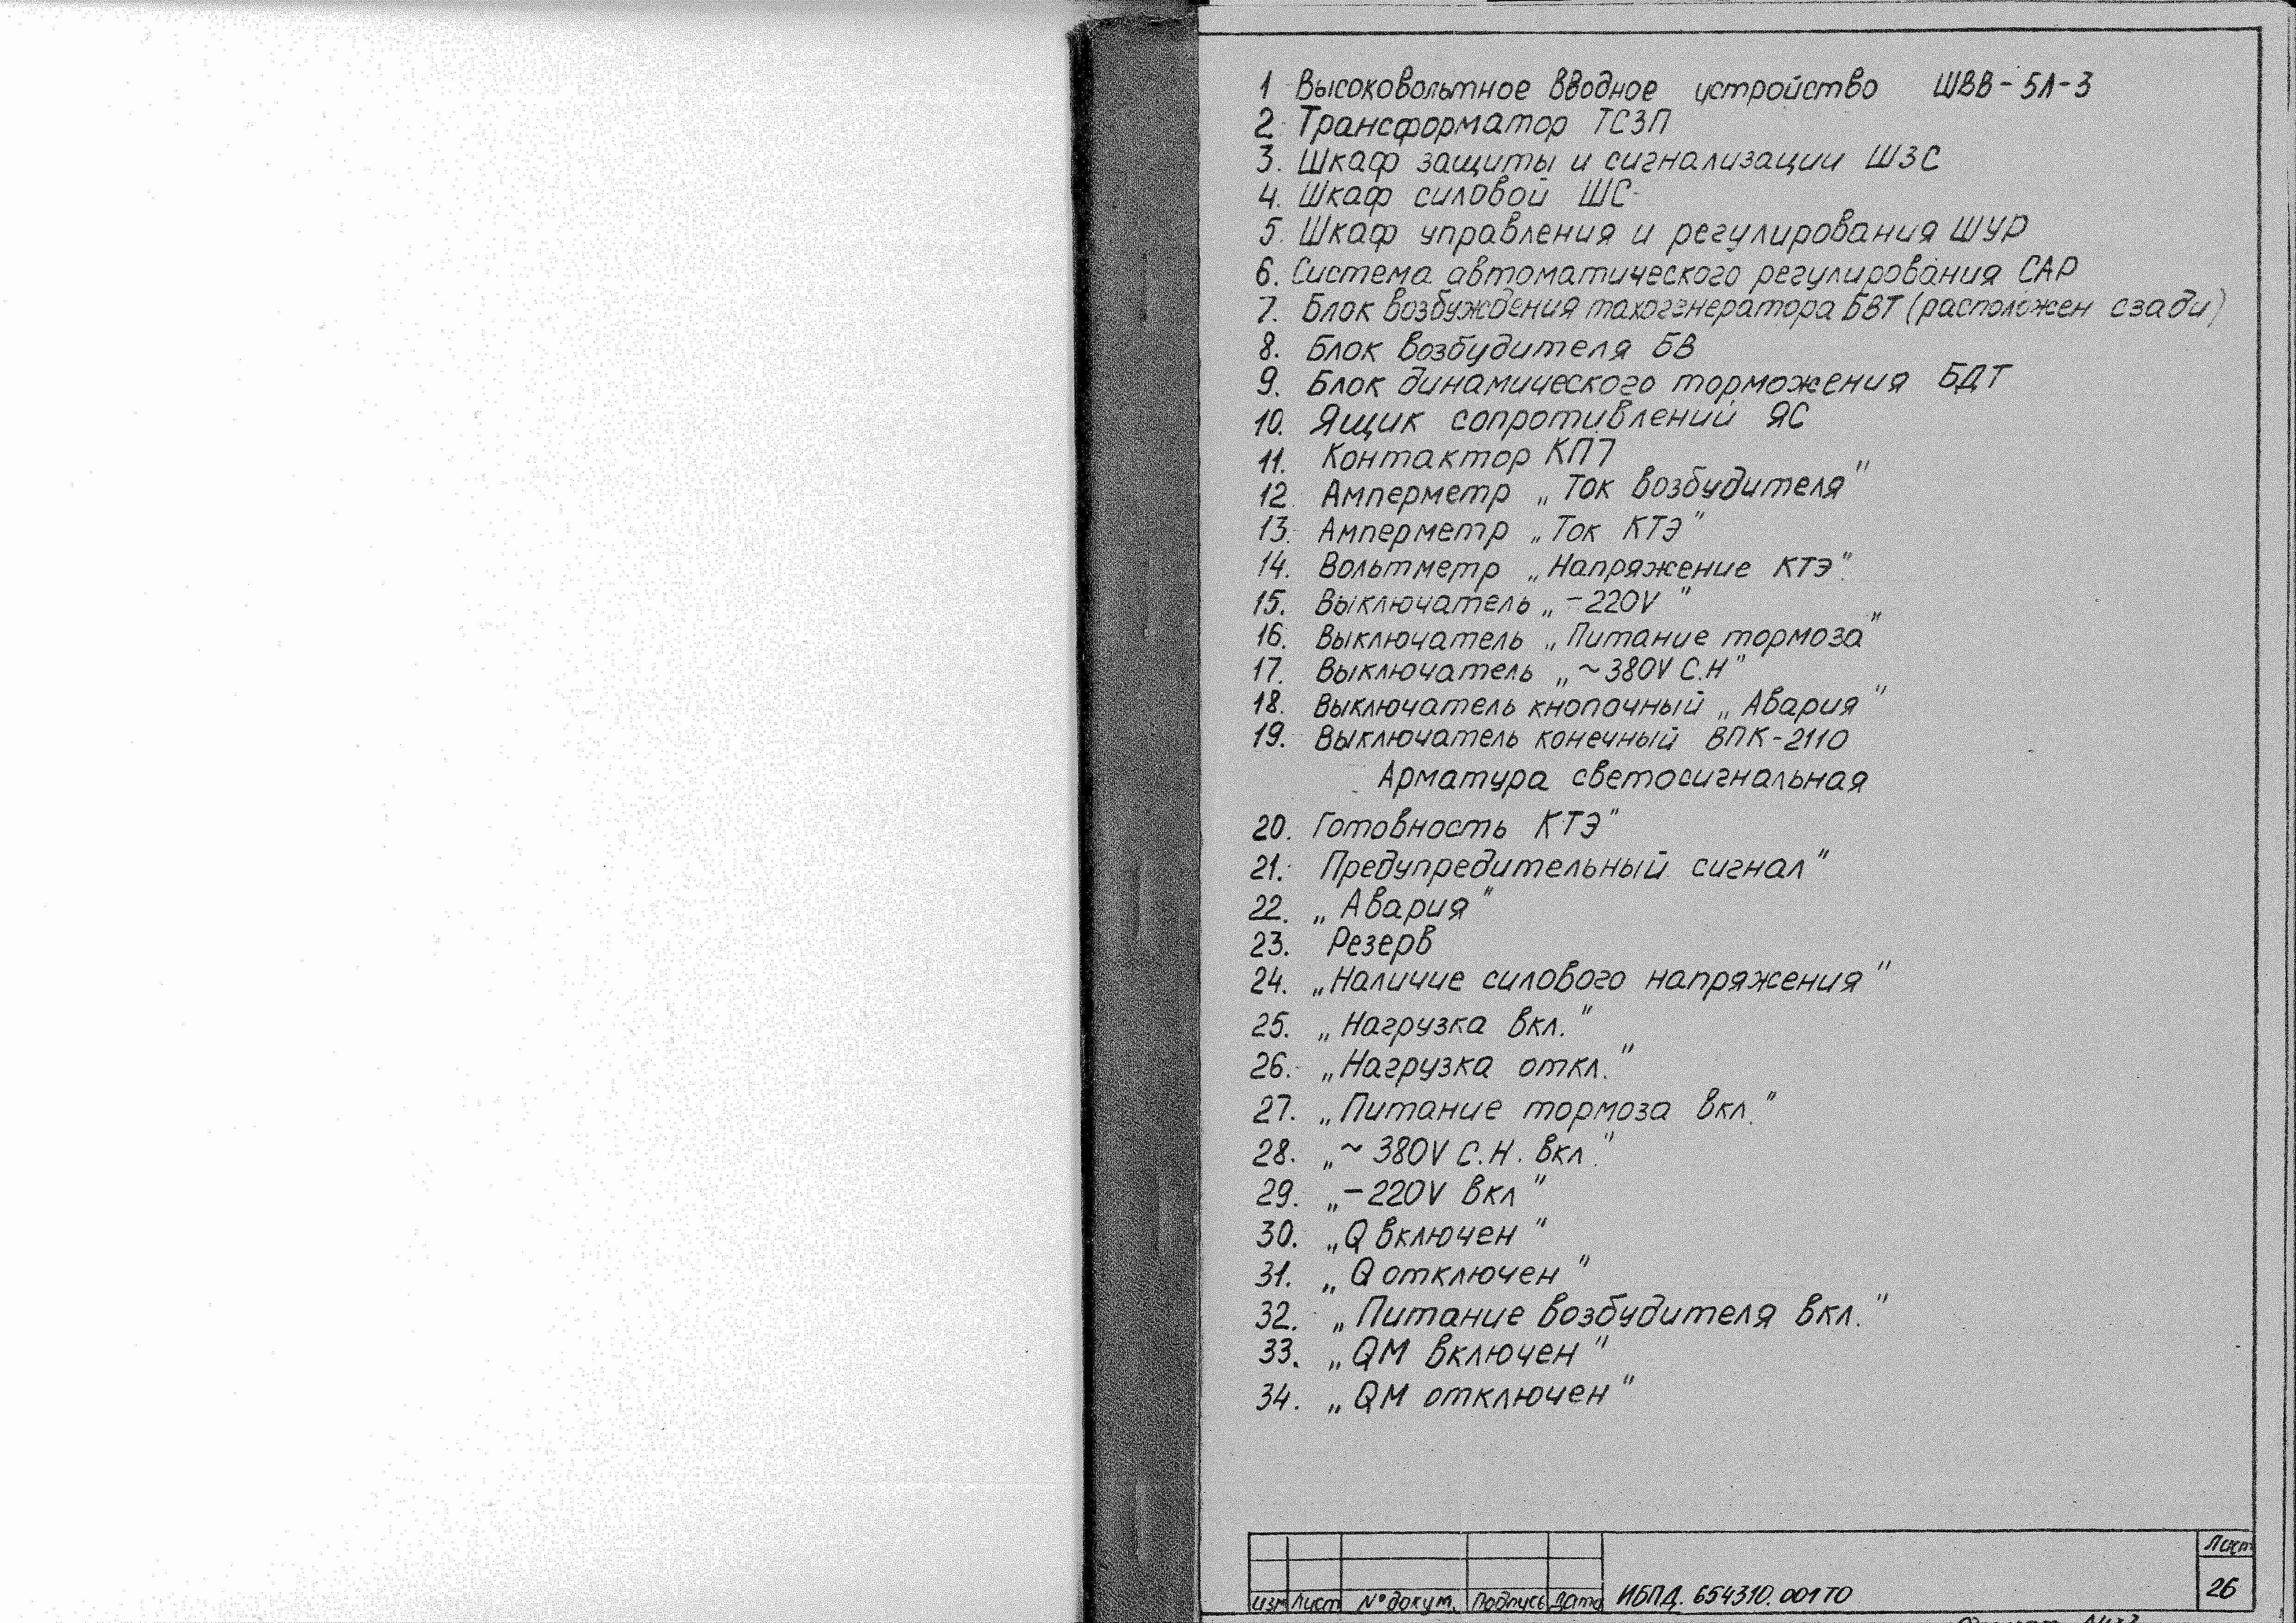 1 Высоковольтное вводное устройство ШВВ-5Л-3
2 Трансформатор ТСЗП
3. Шкаф защиты и сигнализации ШЗС
4. Шкаф силовой ШС
5. Шкаф управления и регулирования ШУР
6. Система автоматического регулирования САР
7. Блок возбуждения тахогенератора БВТ (расположен сзади)
8. Блок возбудителя БВ
9. Блок динамического торможения БДТ
10. Ящик сопротивлений ЯС
11. Контактор КП7
12 Амперметр „Ток возбудителя"
13. Амперметр „Ток КТЭ"
14. Вольтметр „Напряжение КТЭ".
15. Выключатель „-220V"
16. Выключатель „Питание тормоза"
17. Выключатель „~380V С.Н"
18. Выключатель кнопочный „Авария"
19. Выключатель конечный ВПК-2110
Арматура светосигнальная
20. Готовность КТЭ"
21. Предупредительный сигнал"
22. „Авария"
23. Резерв
24. „Наличие силового напряжения"
25. „Нагрузка вкл."
26. „Нагрузка откл."
27. „Питание тормоза вкл."
28. „~ 380V С.Н. вкл."
29. „-220V вкл"
30. „Q включен"
31. „Q отключен"
32. „Питание возбудителя вкл."
33. „QM включен"
34. „QM отключен"
Лист
изм Лист № докум. Подпись Дата ИБПД. 654310.001ТО 26